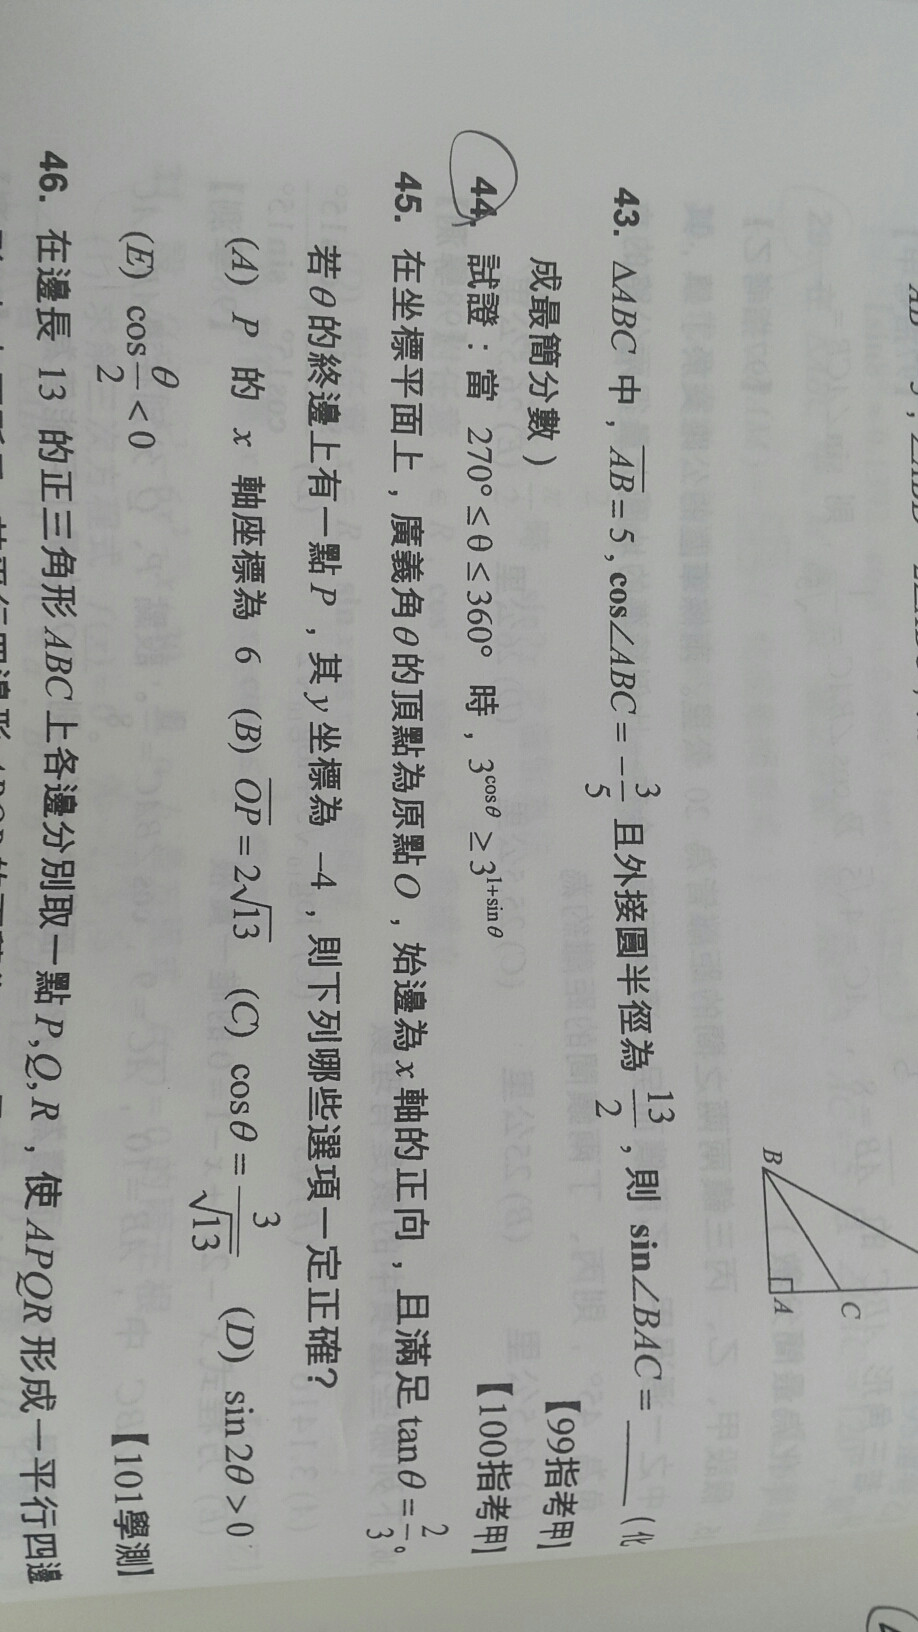 B
A
C
43. ΔABC 中，AB=5，cos∠ABC=-3/5 且外接圓半徑為 13/2，則 sin∠BAC=____（化
成最簡分數） 【99指考甲】
44. 試證：當 270°≤θ≤360° 時，3^{cosθ} ≥ 3^{1+sinθ} 【100指考甲】
45. 在坐標平面上，廣義角θ的頂點為原點O，始邊為x軸的正向，且滿足 tanθ=2/3。
若θ的終邊上有一點P，其y坐標為 -4，則下列哪些選項一定正確？
(A) P 的 x 軸座標為 6 (B) OP=2√13 (C) cosθ=3/√13 (D) sin2θ>0
(E) cos θ/2 <0 【101學測】
46. 在邊長 13 的正三角形ABC上各邊分別取一點P,Q,R，使APQR形成一平行四邊